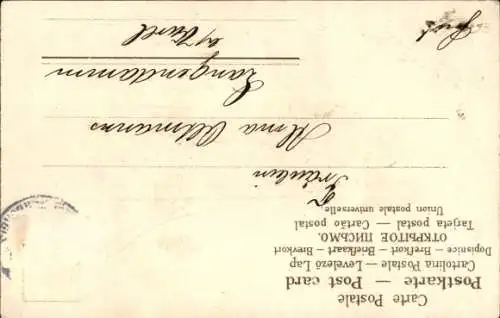 Carte Postale
Postkarte — Post card
Cartolina Postale — Levelező Lap
Dopisnice — Brefkort — Briefkaart — Brevkort
ОТКРЫТОЕ ПИСЬМО.
Tarjeta postal — Cartão postal
Union postale universelle
Fräulein
Alma Altmanns
Langendamm
b/ Varel